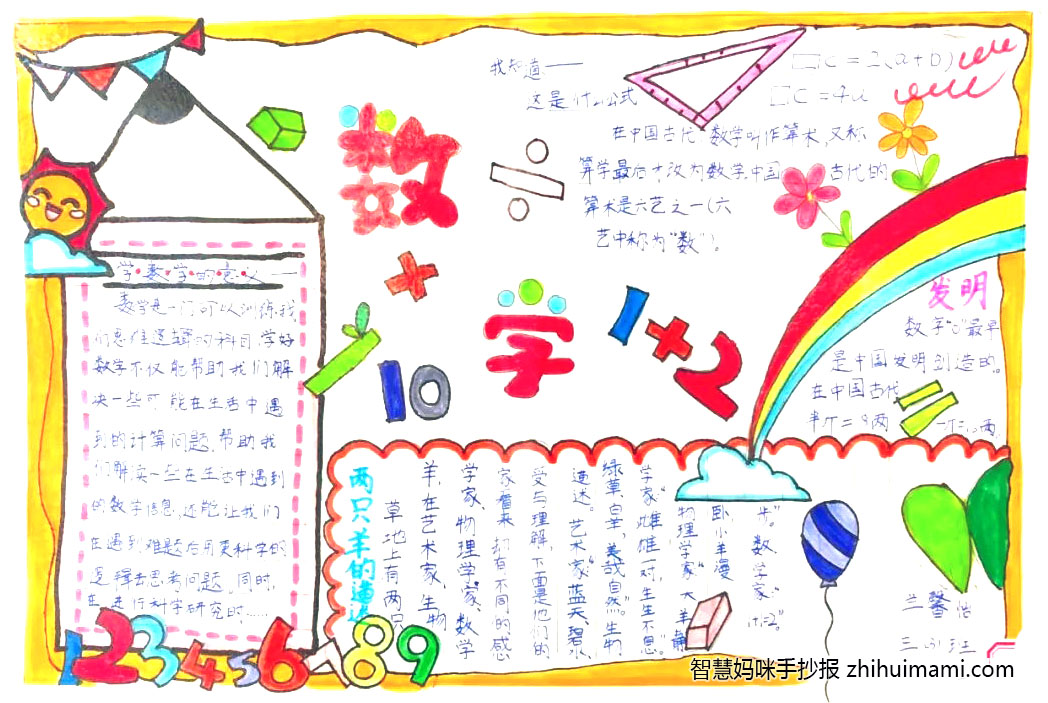 数
学
÷
+
10
1+2
我知道——
这是什么公式
C=2(a+b)
C=4a
在中国古代数学叫作算术,又称
算学最后才改为数学中国古代的
算术是六艺之一(六
艺中称为“数”)。
学数学的意义——
数学是一门可以训练我
们思维逻辑的科目,学好
数学不仅能帮助我们解
决一些可能在生活中遇
到的计算问题,帮助我
们解读一些在生活中遇到
的数字信息,还能让我们
在遇到难题后用更科学的
逻辑去思考问题,同时,
在进行科学研究时……
发明
数字“0”最早
是中国发明创造的。
在中国古代
半斤=8两
两只羊的遐迷
草地上有两只
羊,在艺术家、生物
学家、物理学家、数学
家看来却有不同的感
受与理解,下面是他们的
遥迷。艺术家“蓝天、碧水、
绿草、白羊,美哉自然”。生物
学家“雄雌一对,生生不息”。
物理学家“大羊静
卧,小羊漫
步”。数学家:“1+1=2”
1 2 3 4 5 6 7 8 9
三
班
智慧妈咪手抄报 zhihuimami.com